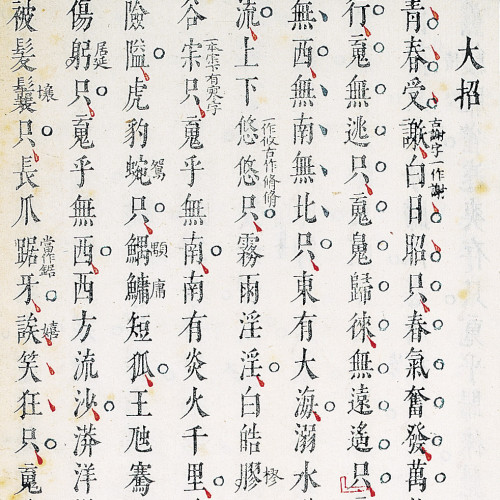 大招
青春受白日昭只春氣奮發萬
古謝字一作謝
行䰟無逃只䰟魄歸徠無遠遙只
無西無南無北只東有大海溺水
流上下悠悠只霧雨淫淫白皓膠
一作攸古作脩脩
樛
谷宋只䰟乎無南南有炎火千里
一本宋下有寥字
險隘虎豹蜿只鰅鱅短狐王虺騫
鴛
顒
庸
傷躬只䰟乎無西西方流沙漭洋
居延
被髮鬤只長爪踞牙誒笑狂只䰟
壤
當作鋸
嬉